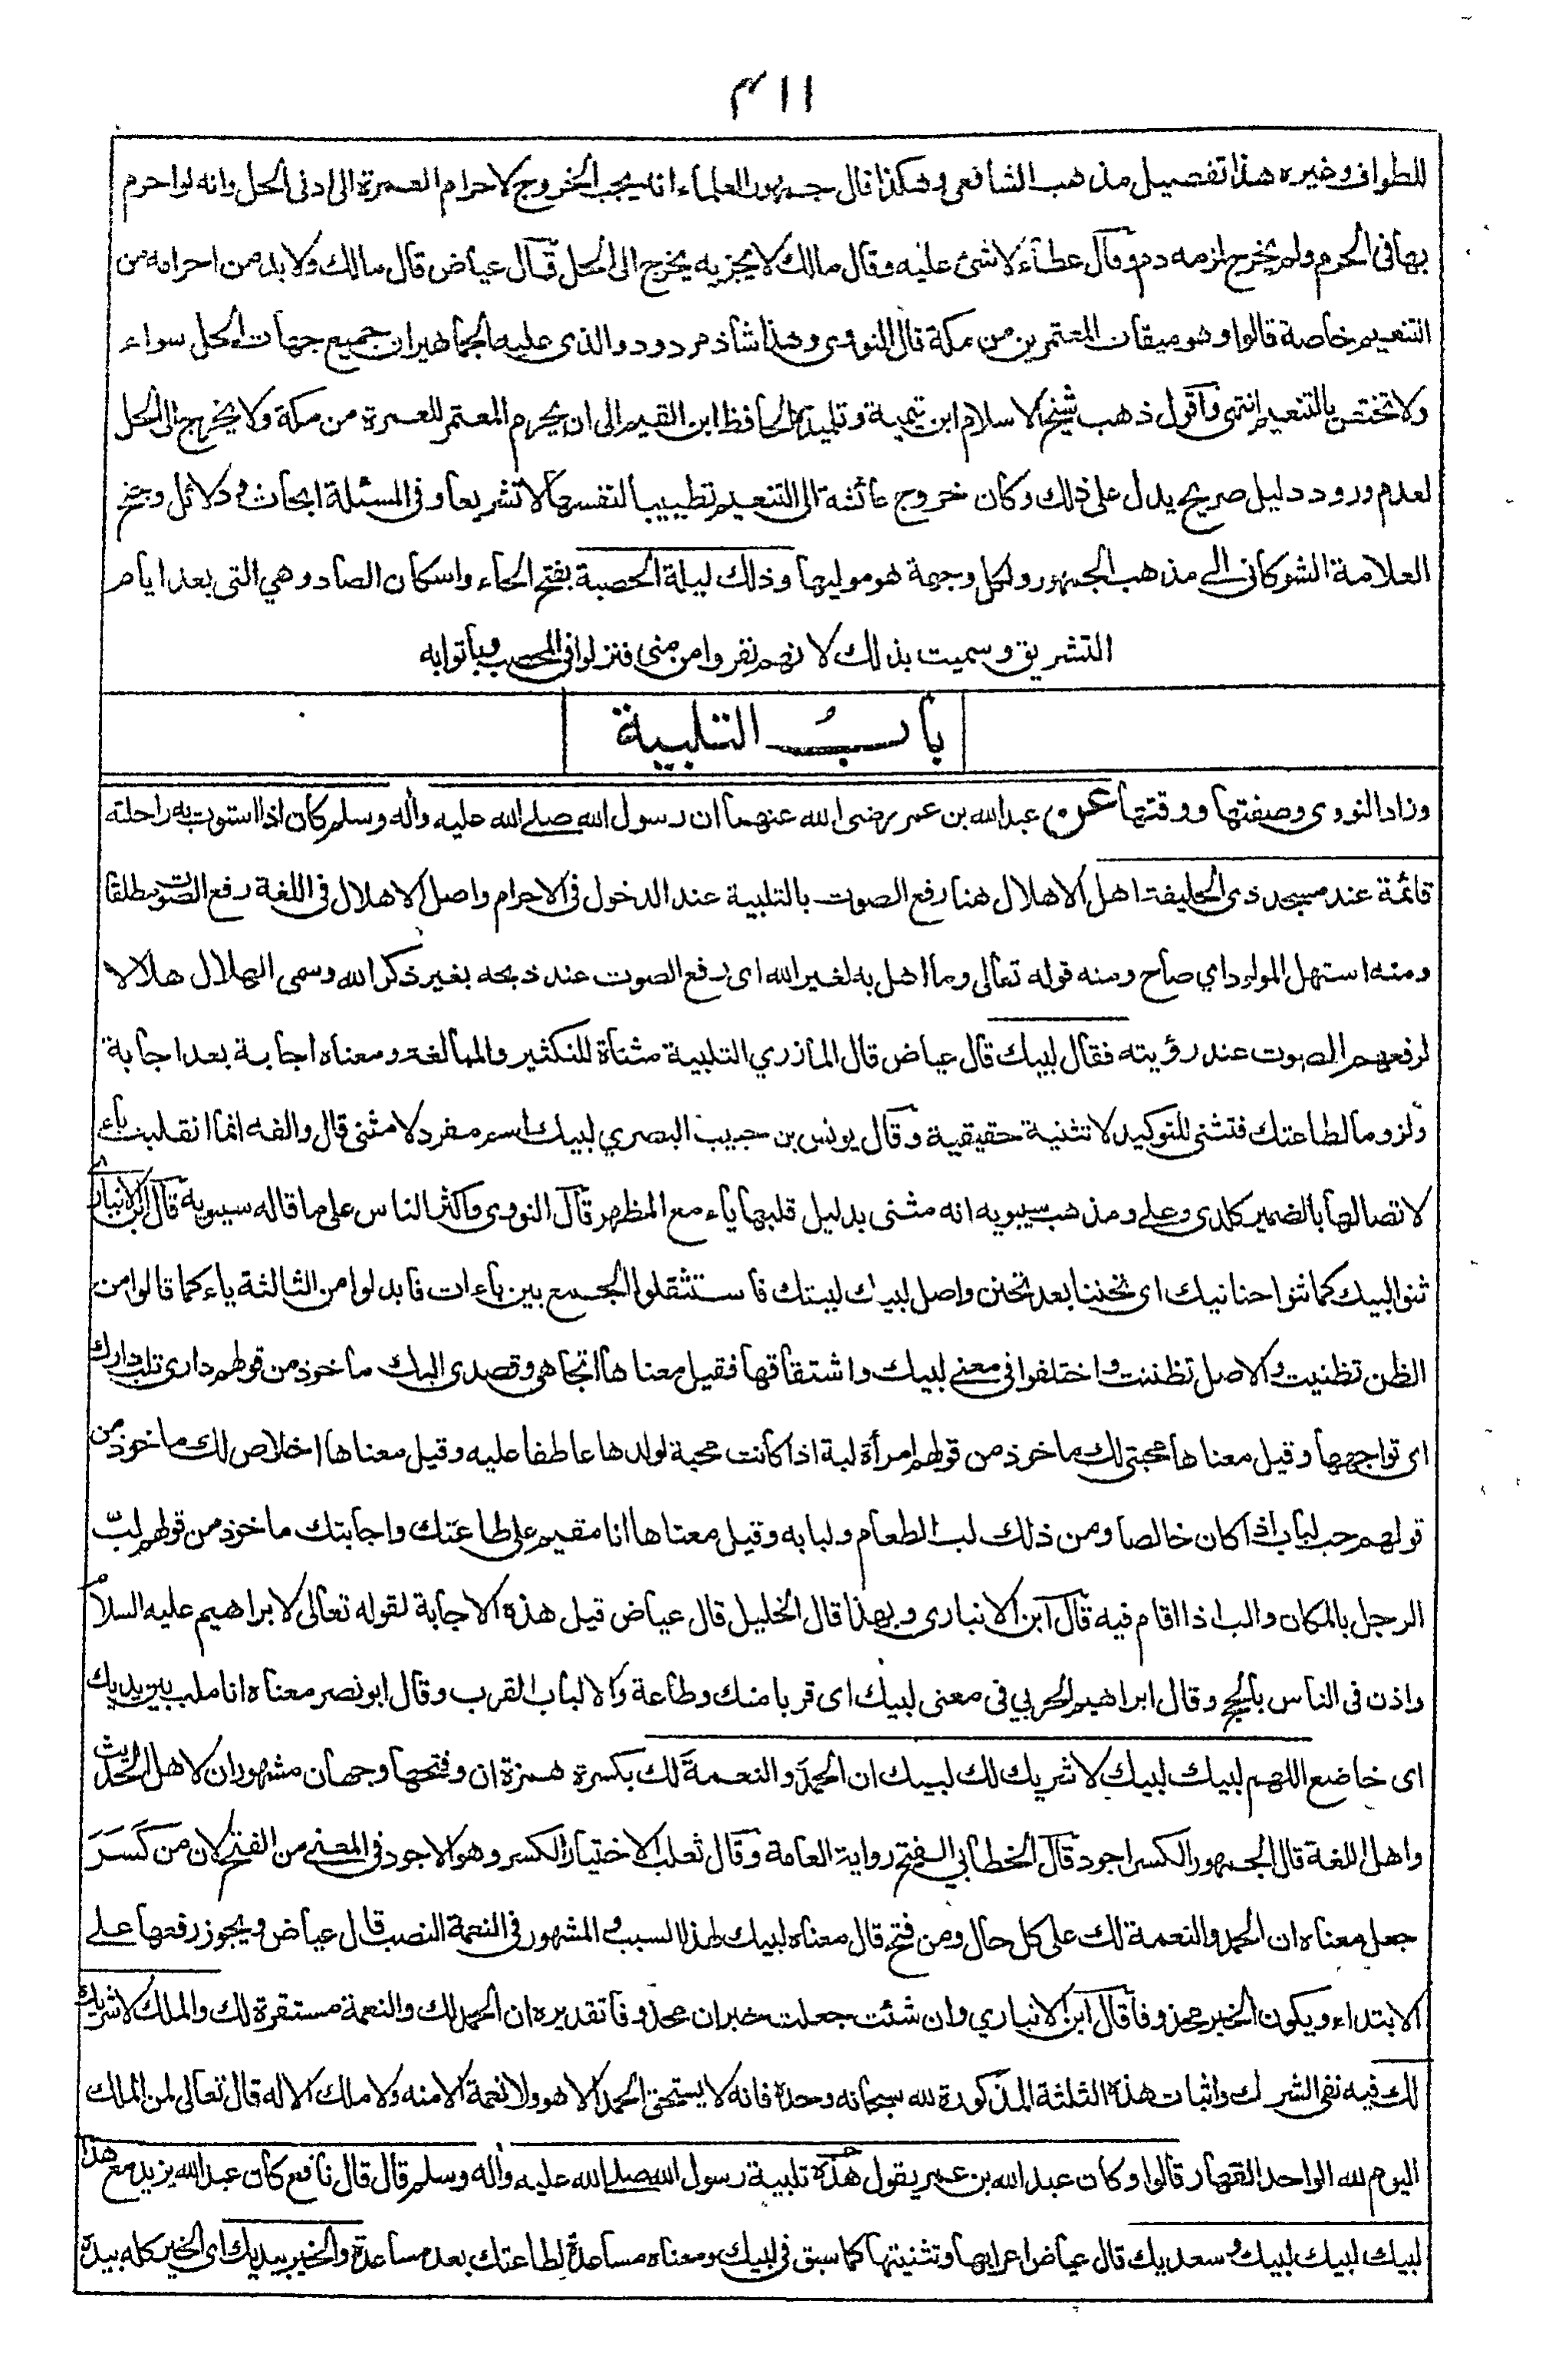 ٤١١
للطواف وغيره هذا تفصيل مذهب الشافعى وهكذا قال جمهور العلماء انه يجب الخروج لاحرام العمرة الى ادنى الحل وانه لو احرم
بها فى الحرم ولم يخرج لزمه دم وقال عطاء لا شئ عليه وقال مالك لا يجزيه يخرج الى الحل قال عياض قال مالك ولا بد من احرامه من
التنعيم خاصة قالوا وهو ميقات المعتمرين من مكة قال النووى وهذا شاذ مردود والذى عليه الجماهير ان جميع جهات الحل سواء
ولا تختص بالتنعيم انتهى واقول ذهب شيخ الاسلام ابن تيمية وتلميذه الحافظ ابن القيم الى ان يحرم المعتمر للعمرة من مكة ولا يخرج الى الحل
لعدم ورود دليل صريح يدل على ذلك وكان خروج عائشة الى التنعيم تطييبا لنفسها لا تشريعا وفى المسئلة ابحاث ودلائل وجنح
العلامة الشوكانى الى مذهب الجمهور ولكل وجهة هو موليها وذلك ليلة الحصبة بفتح الحاء واسكان الصاد وهي التى بعد ايام
التشريق وسميت بذلك لانهم نفروا من منى فنزلوا فى المحصب وباتوا به
باب التلبية
وزاد النووى وصفتها ووقتها عن عبد الله بن عمر رضى الله عنهما ان رسول الله صلے الله عليه وأله وسلم كان اذا استوت به راحلته
قائمة عند مسجد ذى الحليفة اهل الاهلال هنا رفع الصوت بالتلبية عند الدخول فى الاحرام واصل الاهلال فى اللغة رفع الصوت مطلقا
ومنه استهل المولود اي صاح ومنه قوله تعالى وما اهل به لغير الله اى رفع الصوت عند ذبحه بغير ذكر الله وسمى الهلال هلالا
لرفعهم الصوت عند رؤيته فقال لبيك قال عياض قال المازري التلبية مثناة للتكثير والمبالغة ومعناه اجابة بعد اجابة
ولزوما لطاعتك فتثنى للتوكيد لا تثنية حقيقية وقال يونس بن حبيب البصري لبيك اسم مفرد لا مثنى قال والفه انما انقلبت ياء
لاتصالها بالضمير كلدى وعلے ومذهب سيبويه انه مثنى بدليل قلبها ياء مع المظهر قال النووى واكثر الناس على ما قاله سيبويه قال ابن الانبارى
ثنوا لبيك كما ثنوا حنانيك اى تحننا بعد تحنن واصل لبيك لببتك فاستثقلوا الجمع بين باءات فابدلوا من الثالثة ياء كما قالوا من
الظن تظنيت والاصل تظننت واختلفوا فى معنے لبيك واشتقاقها فقيل معناها اتجاهى وقصدى اليك ماخوذ من قولهم دارى تلب دارك
اى تواجهها وقيل معناها محبتى لك ماخوذ من قولهم امرأة لبة اذا كانت محبة لولدها عاطفا عليه وقيل معناها اخلاص لك ماخوذ من
قولهم حب لباب اذا كان خالصا ومن ذلك لب الطعام ولبابه وقيل معناها انا مقيم على طاعتك واجابتك ماخوذ من قولهم لبّ
الرجل بالمكان والب اذا اقام فيه قال ابن الانبارى وبهذا قال الخليل قال عياض قيل هذه الاجابة لقوله تعالى لابراهيم عليه السلام
واذن فى الناس بالحج وقال ابراهيم الحربي فى معنى لبيك اى قربا منك وطاعة والالباب القرب وقال ابو نصر معناه انا ملب بين يديك
اى خاضع اللهم لبيك لبيك لا شريك لك لبيك ان الحمدَ والنعمةَ لك بكسرة همزة ان وفتحها وجهان مشهوران لاهل الحديث
واهل اللغة قال الجمهور الكسر اجود قال الخطابي الفتح رواية العامة وقال ثعلب الاختيار الكسر وهو الاجود فى المعنے من الفتح لان من كَسَرَ
جعل معناه ان الحمد والنعمة لك على كل حال ومن فتح قال معناه لبيك لهذا السبب والمشهور فى النعمة النصب قال عياض ويجوز رفعها علے
الابتداء ويكون الخبر محذوفا قال ابن الانباري وان شئت جعلت خبر ان محذوفا تقديره ان الحمد لك والنعمة مستقرة لك والملك لا شريك
لك فيه نفى الشرك واثبات هذه الثلثة المذكورة لله سبحانه وحده فانه لا يستحق الحمد الا هو ولا نعمة الا منه ولا ملك الا له قال تعالى لمن الملك
اليوم لله الواحد القهار قالوا وكان عبد الله بن عمر يقول هذه تلبية رسول الله صلے الله عليه وأله وسلم قال قال نافع كان عبد الله يزيد مع هذا
لبيك لبيك لبيك وسعديك قال عياض اعرابها وتثنيتها كما سبق فى لبيك ومعناه مساعدة لطاعتك بعد مساعدة والخير بيديك اى الخير كله بيده